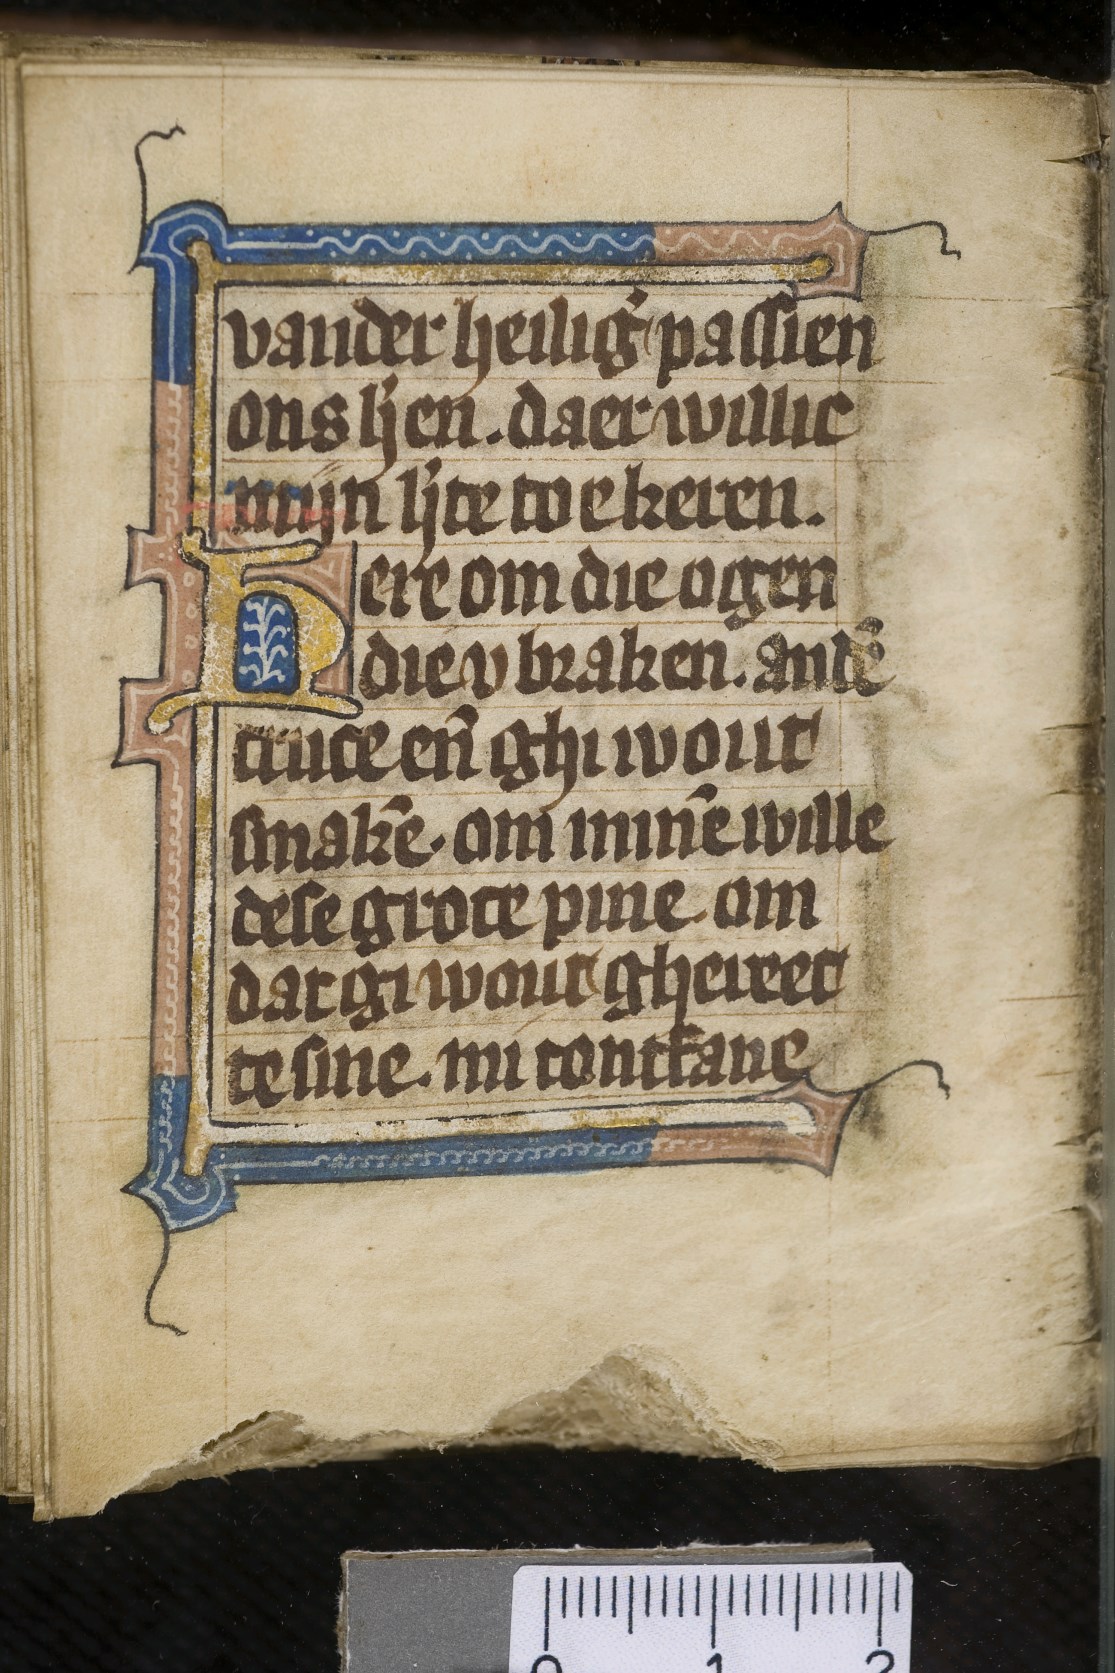 vander heilig̕ passien
ons lijen . daer willic
mijn lijte toe keren .
Here om die ogen
die v braken . an dē
cruce en̄ ghi wout
smakē . om minē wille
dese grote pine . om
dat gi wout gherect
te sine . mi tontfane
0 1 2